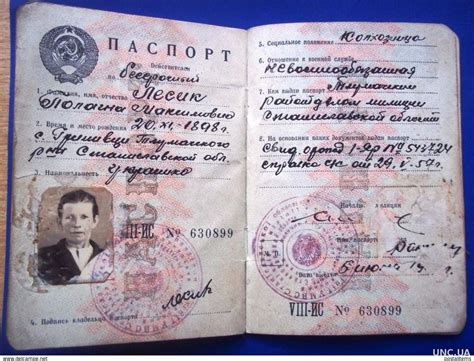 ПАСПОРТ
Действителен
по бессрочный
1. Фамилия, имя, отчество Лесик
Максимовна
2. Время и место рождения 20.XI-1898г.
Тлумачского
р-на Станиславской обл.
3. Национальность украинка
VIII-ИС № 630899
4. Подпись владельца паспорта
лесик
5. Социальное положение Колхозница
6. Отношение к военной службе
Невоеннообязанная
7. Кем выдан паспорт Тлумачским
Райотделом милиции
Станиславской области
8. На основании каких документов выдан паспорт
Свид. о рожд. 1-Яр № 543724
справка с/с от 29.V-57г.
Начальник милиции
VIII-ИС № 630899
UNC.UA